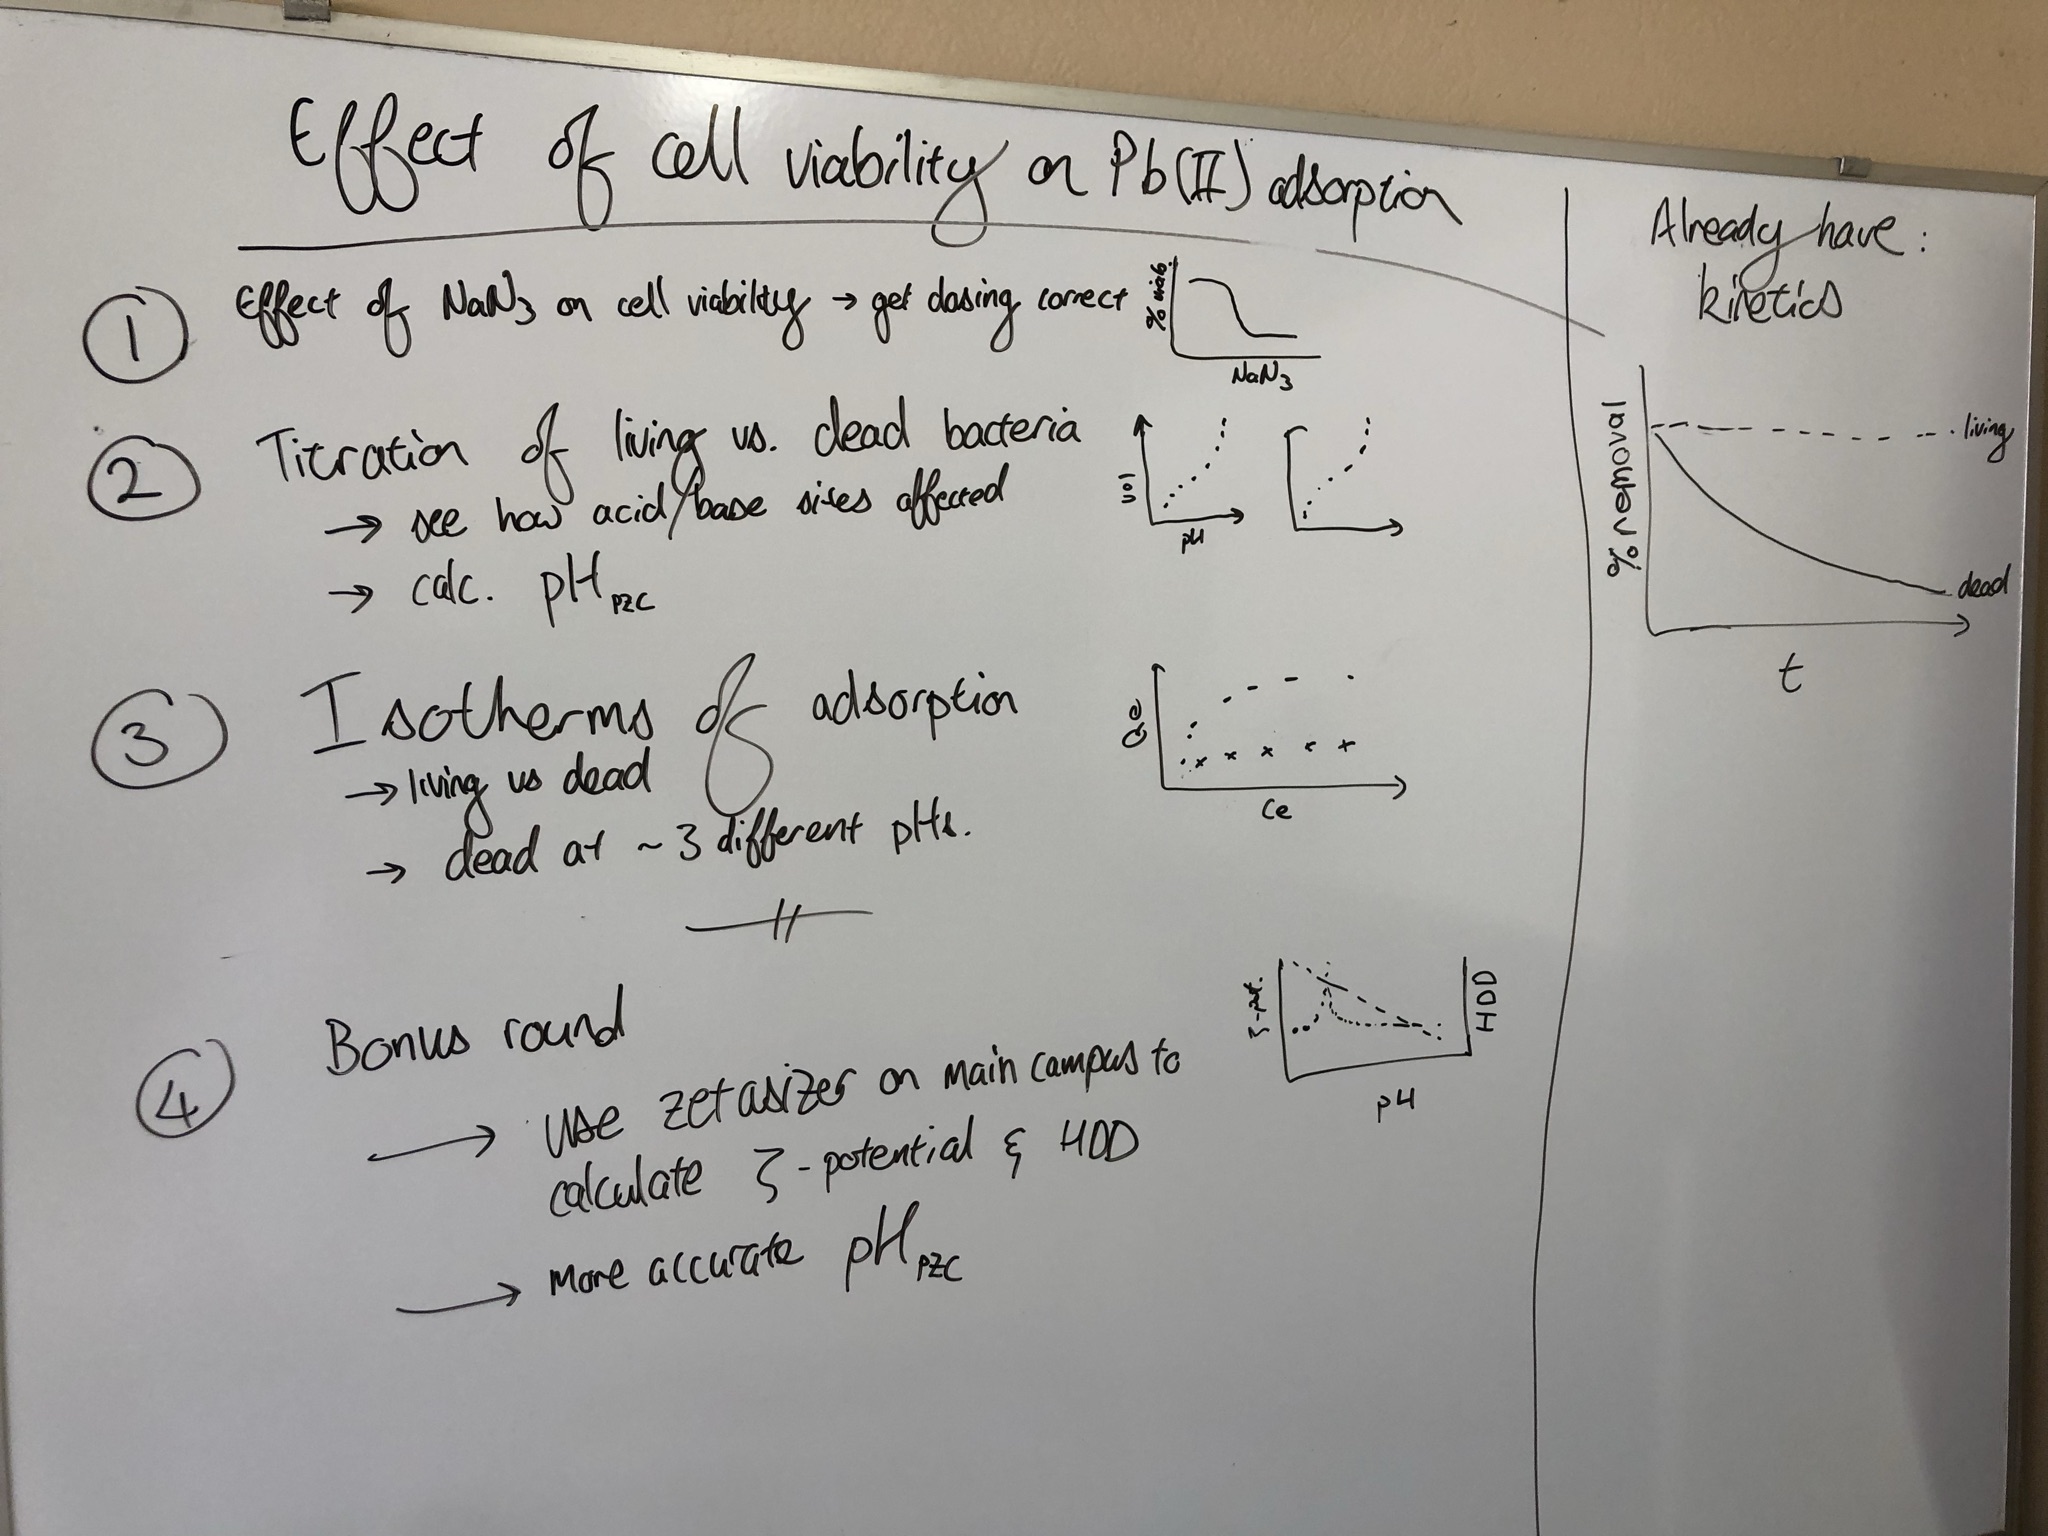 Effect of cell viability on Pb(II) adsorption
1 Effect of NaN3 on cell viability → get dosing correct
% viab.
NaN3
2 Titration of living vs. dead bacteria
→ see how acid/base sites affected
→ calc. pHPZC
vol
pH
3 Isotherms of adsorption
→ living vs dead
→ dead at ~ 3 different pHs.
Qe
Ce
4 Bonus round
→ use zetasizer on main campus to
calculate ζ-potential & HDD
→ more accurate pHPZC
ζ-pot.
HDD
pH
Already have:
kinetics
% removal
living
dead
t